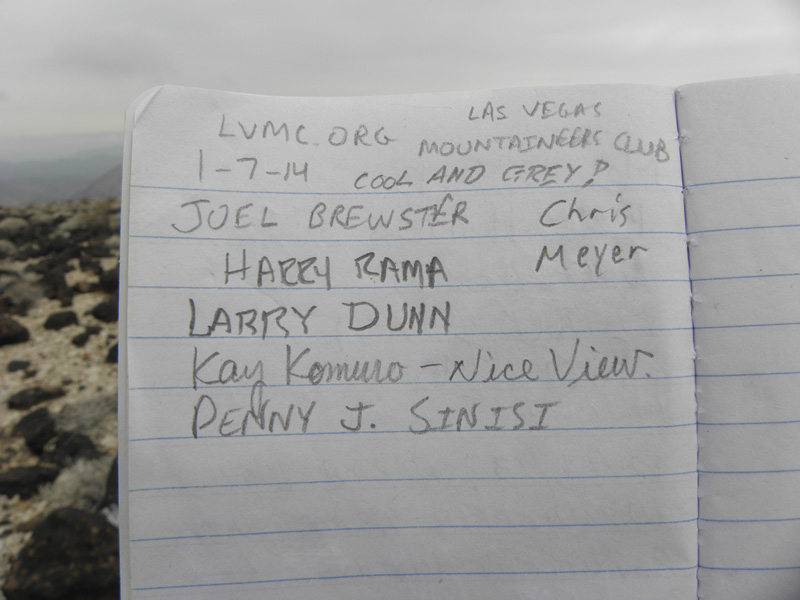 LVMC.ORG LAS VEGAS
MOUNTAINEERS CLUB
1-7-14 COOL AND GREY!
JOEL BREWSTER Chris
HARRY RAMA Meyer
LARRY DUNN
Kay Komuro - Nice View.
PENNY J. SINISI